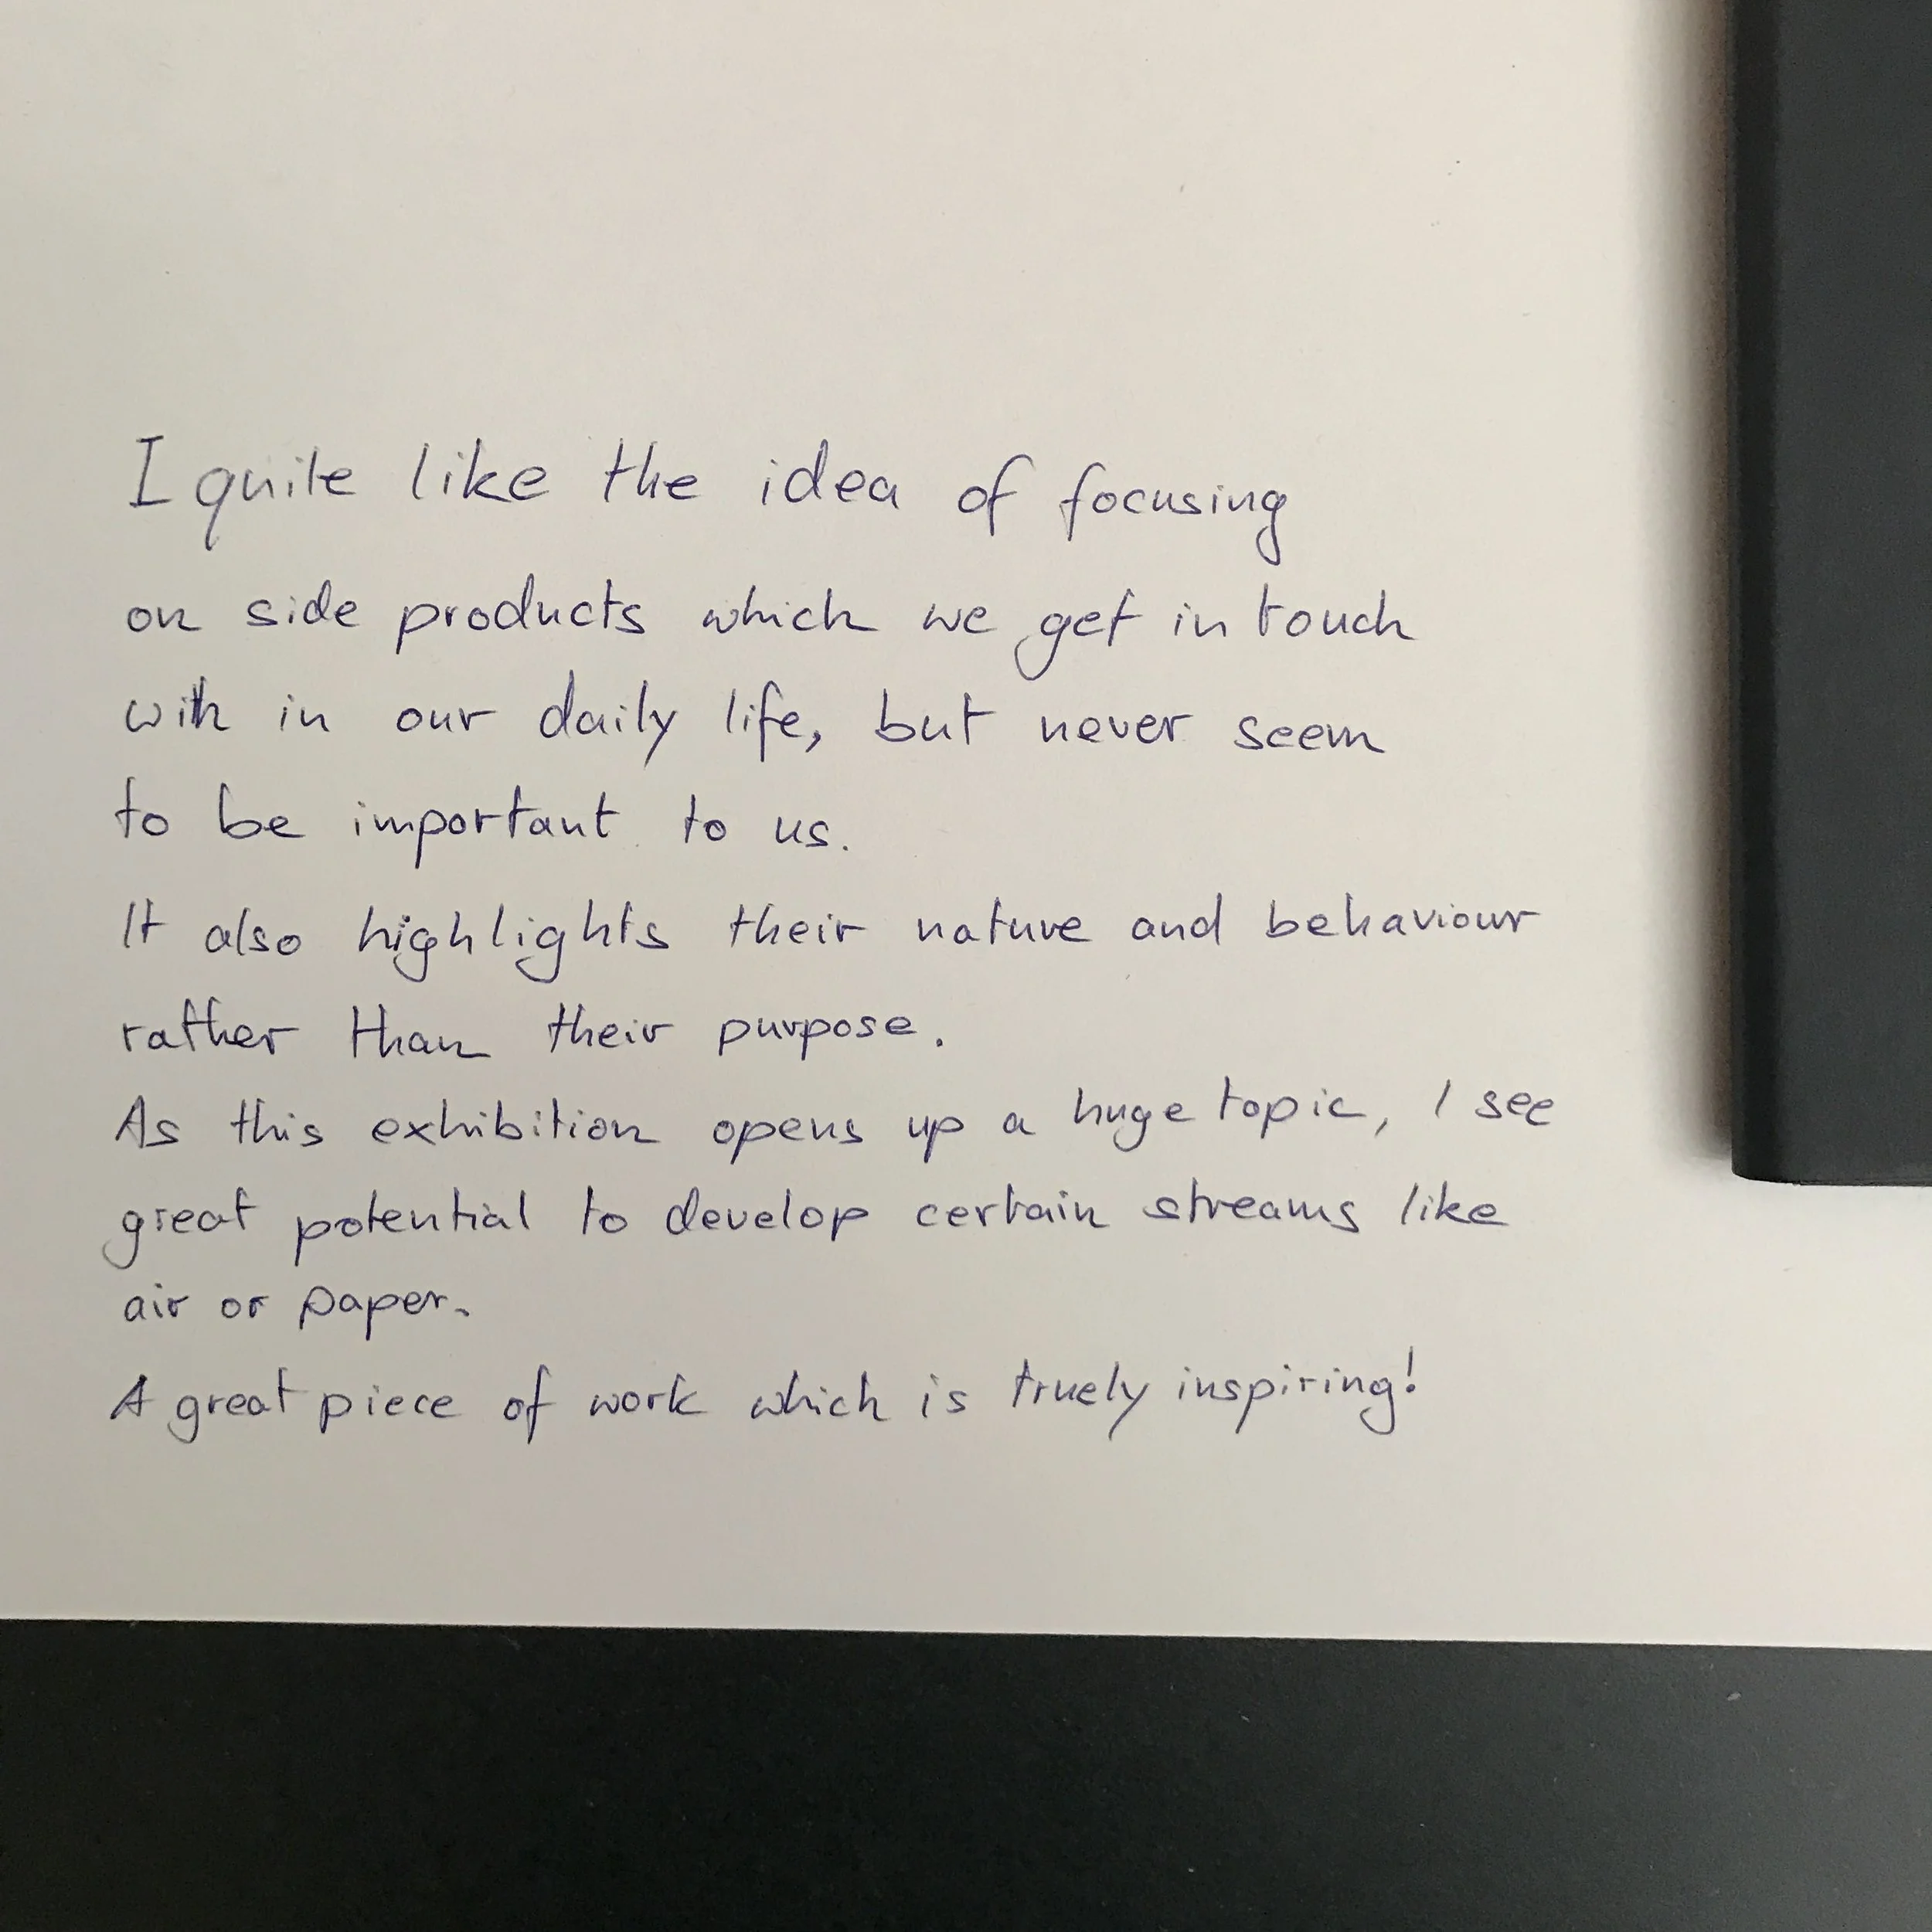 I quite like the idea of focusing
on side products which we get in touch
with in our daily life, but never seem
to be important to us.
It also highlights their nature and behaviour
rather than their purpose.
As this exhibition opens up a huge topic, I see
great potential to develop certain streams like
air or paper.
A great piece of work which is truely inspiring!